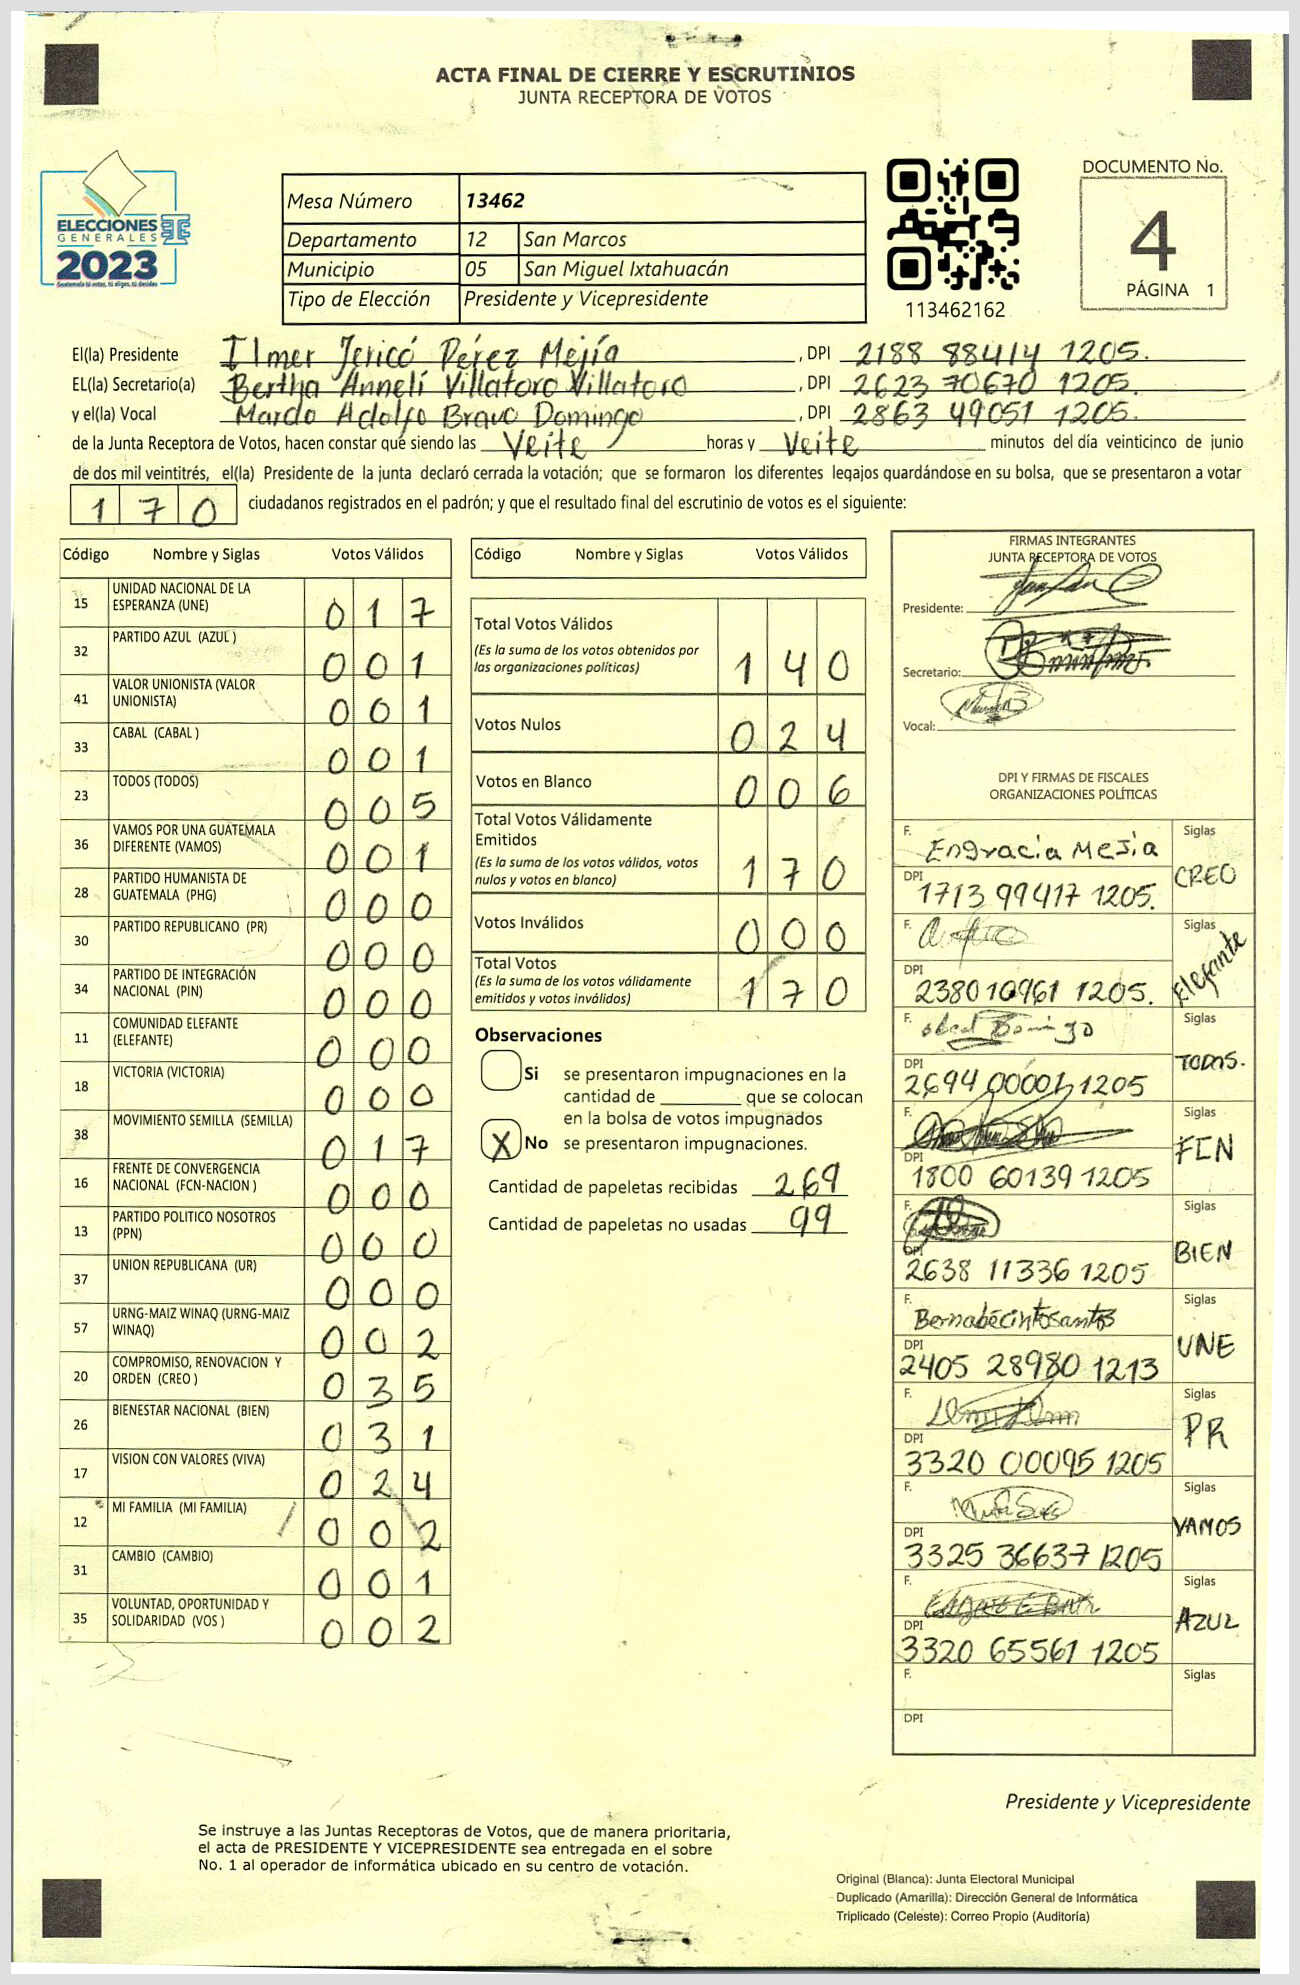 ACTA FINAL DE CIERRE Y ESCRUTINIOS
JUNTA RECEPTORA DE VOTOS
ELECCIONES
GENERALES
2023
Guatemala tú votas, tú eliges, tú decides
Mesa Número 13462
Departamento 12 San Marcos
Municipio 05 San Miguel Ixtahuacán
Tipo de Elección Presidente y Vicepresidente
113462162
DOCUMENTO No.
4
PÁGINA 1
El(la) Presidente Ilmer Jericó Pérez Mejía, DPI 2188 88414 1205.
EL(la) Secretario(a) Bertha Annelí Villatoro Villatoro, DPI 2623 70670 1205.
y el(la) Vocal Mardo Adolfo Bravo Domingo, DPI 2863 49051 1205.
de la Junta Receptora de Votos, hacen constar que siendo las Veite horas y Veite minutos del día veinticinco de junio
de dos mil veintitrés, el(la) Presidente de la junta declaró cerrada la votación; que se formaron los diferentes legajos guardándose en su bolsa, que se presentaron a votar
170 ciudadanos registrados en el padrón; y que el resultado final del escrutinio de votos es el siguiente:
Código Nombre y Siglas Votos Válidos
15 UNIDAD NACIONAL DE LA
ESPERANZA (UNE) 017
32 PARTIDO AZUL (AZUL ) 001
41 VALOR UNIONISTA (VALOR
UNIONISTA) 001
33 CABAL (CABAL ) 001
23 TODOS (TODOS) 005
36 VAMOS POR UNA GUATEMALA
DIFERENTE (VAMOS) 001
28 PARTIDO HUMANISTA DE
GUATEMALA (PHG) 000
30 PARTIDO REPUBLICANO (PR) 000
34 PARTIDO DE INTEGRACIÓN
NACIONAL (PIN) 000
11 COMUNIDAD ELEFANTE
(ELEFANTE) 000
18 VICTORIA (VICTORIA) 000
38 MOVIMIENTO SEMILLA (SEMILLA) 017
16 FRENTE DE CONVERGENCIA
NACIONAL (FCN-NACION ) 000
13 PARTIDO POLITICO NOSOTROS
(PPN) 000
37 UNION REPUBLICANA (UR) 000
57 URNG-MAIZ WINAQ (URNG-MAIZ
WINAQ) 002
20 COMPROMISO, RENOVACION Y
ORDEN (CREO ) 035
26 BIENESTAR NACIONAL (BIEN) 031
17 VISION CON VALORES (VIVA) 024
12 MI FAMILIA (MI FAMILIA) 002
31 CAMBIO (CAMBIO) 001
35 VOLUNTAD, OPORTUNIDAD Y
SOLIDARIDAD (VOS ) 002
Código Nombre y Siglas Votos Válidos
Total Votos Válidos
(Es la suma de los votos obtenidos por
las organizaciones políticas) 140
Votos Nulos 024
Votos en Blanco 006
Total Votos Válidamente
Emitidos
(Es la suma de los votos válidos, votos
nulos y votos en blanco) 170
Votos Inválidos 000
Total Votos
(Es la suma de los votos válidamente
emitidos y votos inválidos) 170
Observaciones
Si se presentaron impugnaciones en la
cantidad de ________ que se colocan
en la bolsa de votos impugnados
X No se presentaron impugnaciones.
Cantidad de papeletas recibidas 269
Cantidad de papeletas no usadas 99
FIRMAS INTEGRANTES
JUNTA RECEPTORA DE VOTOS
Presidente:
Secretario:
Vocal:
DPI Y FIRMAS DE FISCALES
ORGANIZACIONES POLÍTICAS
F. Engracia Mejia Siglas
DPI 1713 99417 1205. CREO
F. Siglas
DPI 2380 10961 1205. Elefante
F. Siglas
DPI 2694 00001 1205 TODOS.
F. Siglas
DPI 1800 60139 1205 FCN
F. Siglas
DPI 2638 11336 1205 BIEN
F. Siglas
DPI 2405 28980 1213 UNE
F. Siglas
DPI 3320 00095 1205 PR
F. Siglas
DPI 3325 36637 1205 VAMOS
F. Siglas
DPI 3320 65561 1205 AZUL
F. Siglas
DPI
Presidente y Vicepresidente
Se instruye a las Juntas Receptoras de Votos, que de manera prioritaria,
el acta de PRESIDENTE Y VICEPRESIDENTE sea entregada en el sobre
No. 1 al operador de informática ubicado en su centro de votación.
Original (Blanca): Junta Electoral Municipal
Duplicado (Amarilla): Dirección General de Informática
Triplicado (Celeste): Correo Propio (Auditoría)